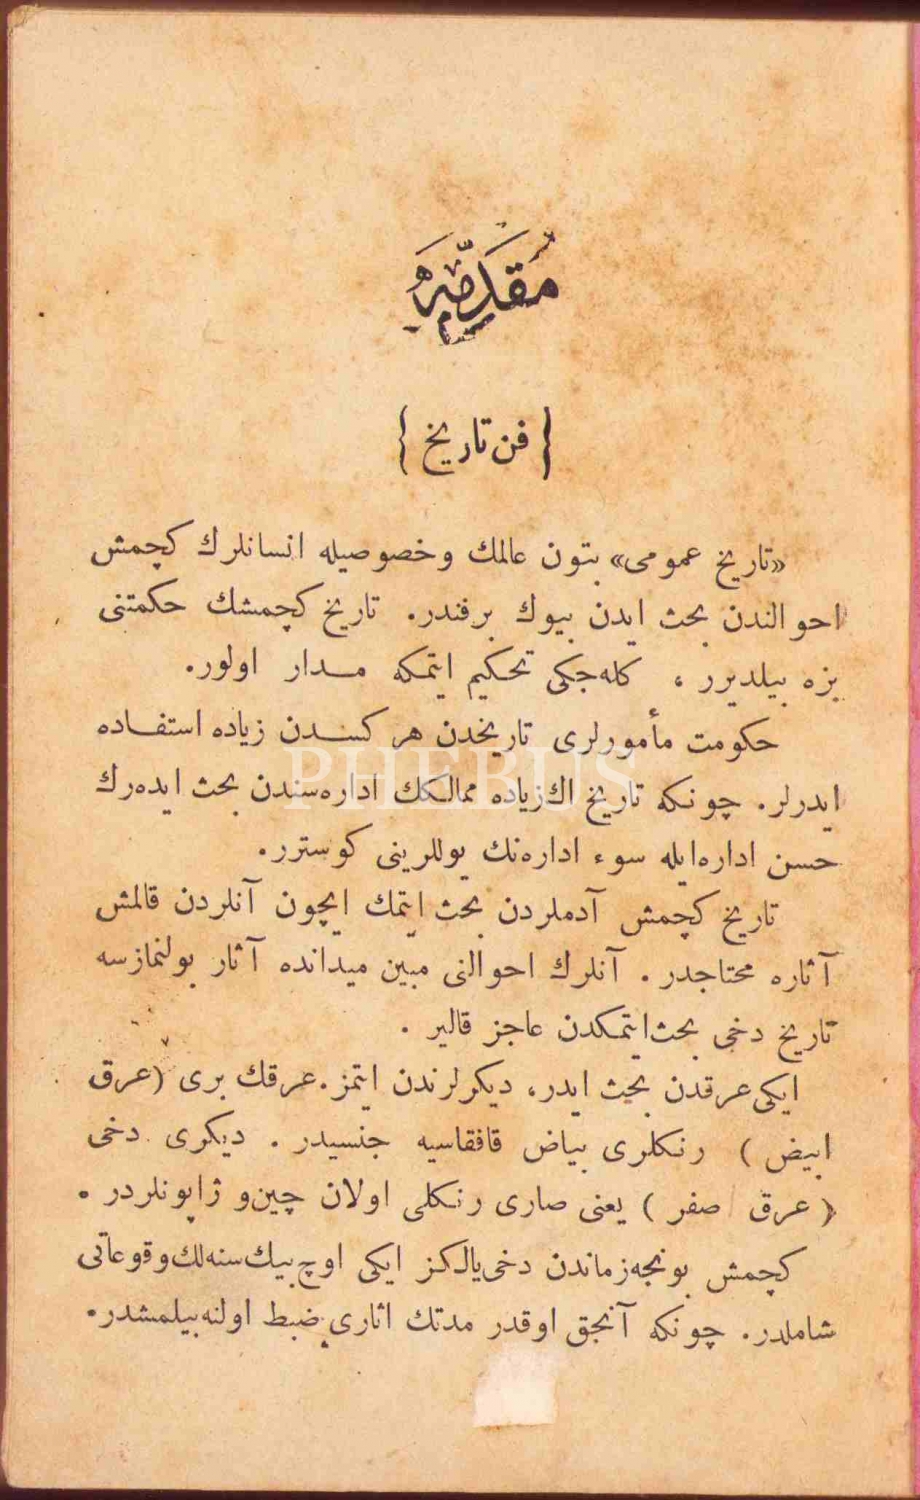 مُقَدِّمَه
{ فن تاريخ }
«تاريخ عمومى» بتون عالمك وخصوصيله انسانلرك كچمش
احوالندن بحث ايدن بيوك برفندر. تاريخ كچمشك حكمتنى
بزه بيلديرر ، كله‌جكى تحكيم ايتمكه مدار اولور.
حكومت مأمورلرى تاريخدن هر كسدن زياده استفاده
ايدرلر. چونكه تاريخ اك زياده ممالكك اداره‌سندن بحث ايده‌رك
حسن اداره ايله سوء اداره‌نك يوللرينى كوسترر.
PHEBUS
تاريخ كچمش آدملردن بحث ايتمك ايچون آنلردن قالمش
آثاره محتاجدر . آنلرك احوالنى مبين ميدانده آثار بولنمازسه
تاريخ دخى بحث ايتمكدن عاجز قالير .
ايكى عرقدن بحث ايدر، ديكرلرندن ايتمز. عرقك برى (عرق
ابيض ) رنكلرى بياض قافقاسيه جنسيدر . ديكرى دخى
( عرق اصفر ) يعنى صارى رنكلى اولان چين و ژاپونلردر .
كچمش بونجه زماندن دخى يالكز ايكى اوچ بيك سنه‌لك وقوعاتى
شاملدر. چونكه آنجق اوقدر مدتك اثارى ضبط اولنه بيلمشدر.